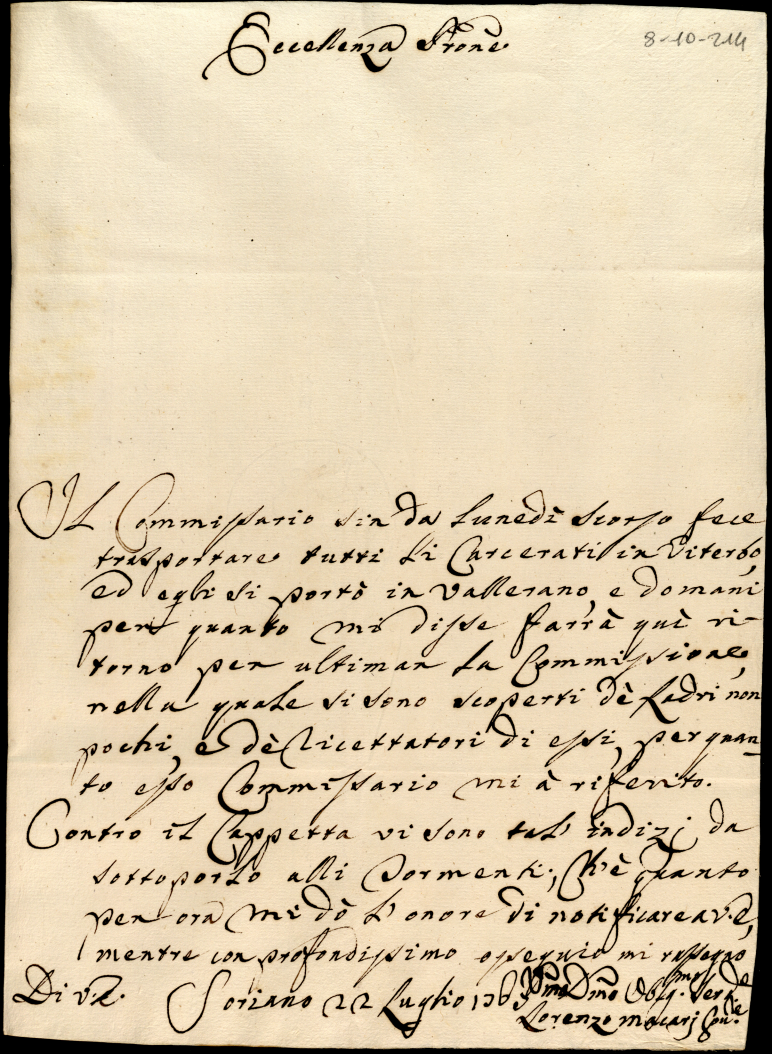 Eccellenza Prone
8-10-214
Il Commissario sin da Lunedì scorso fece
trasportare tutti li Carcerati in Viterbo,
ed egli si portò in Vallerano, e domani
per quanto mi disse farrà quì ri-
torno per ultimar la Commissione,
nella quale si sono scoperti dè Ladri non
pochi, e dè Ricettatori di essi, per quan-
to esso Commissario mi à riferito.
Contro il Cappetta vi sono tal' indizj da
sottoporlo alli Tormenti; Ch'è quanto
per ora mi dò l'onore di notificare a V.E.,
mentre con profondissimo ossequio mi rassegno
Di V.E.
Soriano 22 Luglio
Dmo Oblg.mo Ser.de
Lorenzo Macarj